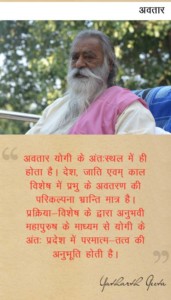 अवतार
अवतार योगी के अंतःस्थल में ही
होता है। देश, जाति एवम् काल
विशेष में प्रभु के अवतरण की
परिकल्पना भ्रान्ति मात्र है।
प्रक्रिया-विशेष के द्वारा अनुभवी
महापुरुष के माध्यम से योगी के
अंतः प्रदेश में परमात्म-तत्व की
अनुभूति होती है।
Yatharth Geeta